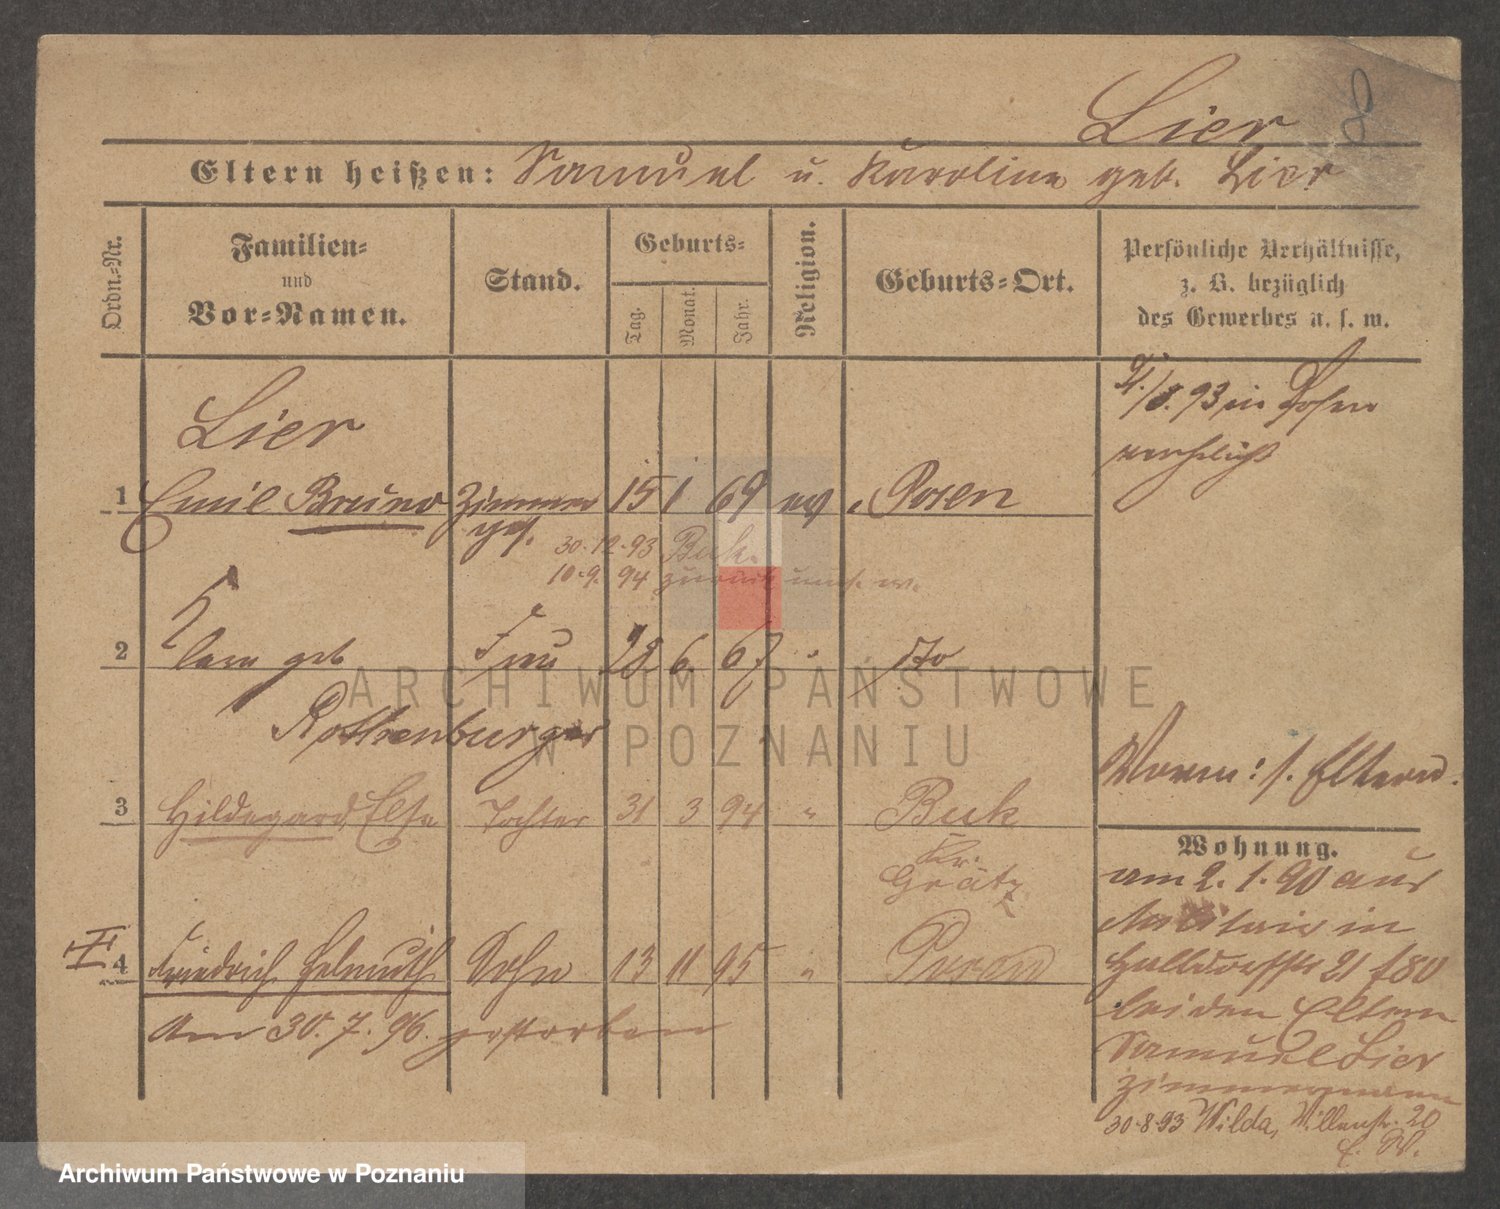 Lier
Eltern heißen: Samuel u. Karoline geb. Lier
Ordn.-Nr.
Familien-
und
Vor-Namen.
Stand.
Geburts-
Tag.
Monat.
Jahr.
Religion.
Geburts-Ort.
Persönliche Verhältnisse,
z. B. bezüglich
des Gewerbes u. s. w.
/8.93 in Posen
verehelicht
Lier
1 Emil Bruno Zimmer 15 1 69 ev. Posen
ges.
30.12.93 Buk.
10.9.94 zurück
2 Clara geb. Frau 28 6 67 " dto
Rothenburger
Waren: s. Eltern.
3 Hildegard Else Tochter 31 3 94 " Buk
Kr.
Grätz
4 Friedrich Helmuth Sohn 13 11 95 " Posen
Am 30.7.96. gestorben
Wohnung.
am 2.1.90 aus
Militair in
Halldorfstr 21 f 80
bei den Eltern
Samuel Lier
Zimmermann
30.8.93 Wilda, Villenstr. 20
ARCHIWUM PAŃSTWOWE
W POZNANIU
Archiwum Państwowe w Poznaniu